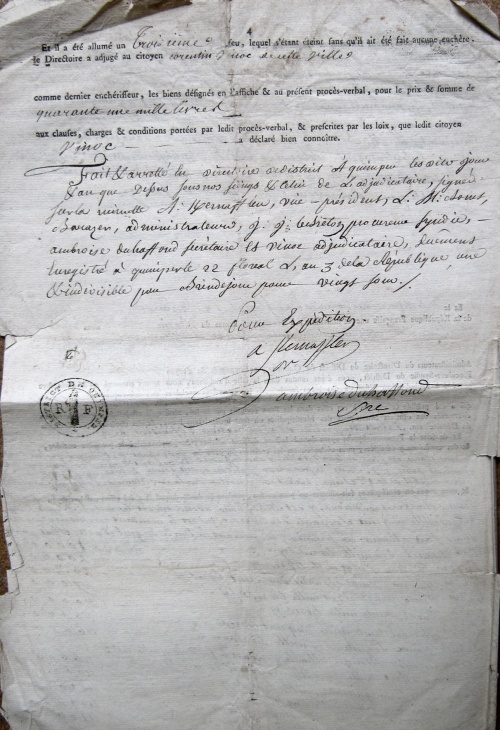 4
Et il a été allumé un troisième feu, lequel s'étant éteint sans qu'il ait été fait aucune enchère.
le Directoire a adjugé au citoyen corentin Vinoc de cette ville
comme dernier enchérisseur, les biens désignés en l'affiche & au présent procès-verbal, pour le prix & somme de
quarante une mille livres
aux clauses, charges & conditions portées par ledit procès-verbal, & prescrites par les loix, que ledit citoyen
Vinoc a déclaré bien connoître.
Fait & arretté en directoire du district A quimper les dits jour
& an que dessus sous nos seings & celui de L'adjudicataire, signé
sur la minutte A. Kernafflen, vice-président, L.
administrateurs, procureur syndic,
ambroise duhaffond secrétaire et vinoc adjudicataire,
Enregistré à quimper le 22 floreal L'an 3 de la République, une
& indivisible pour vingt sous.
Pour Expédition
A Kernafflen
ambroise duhaffond
Sre